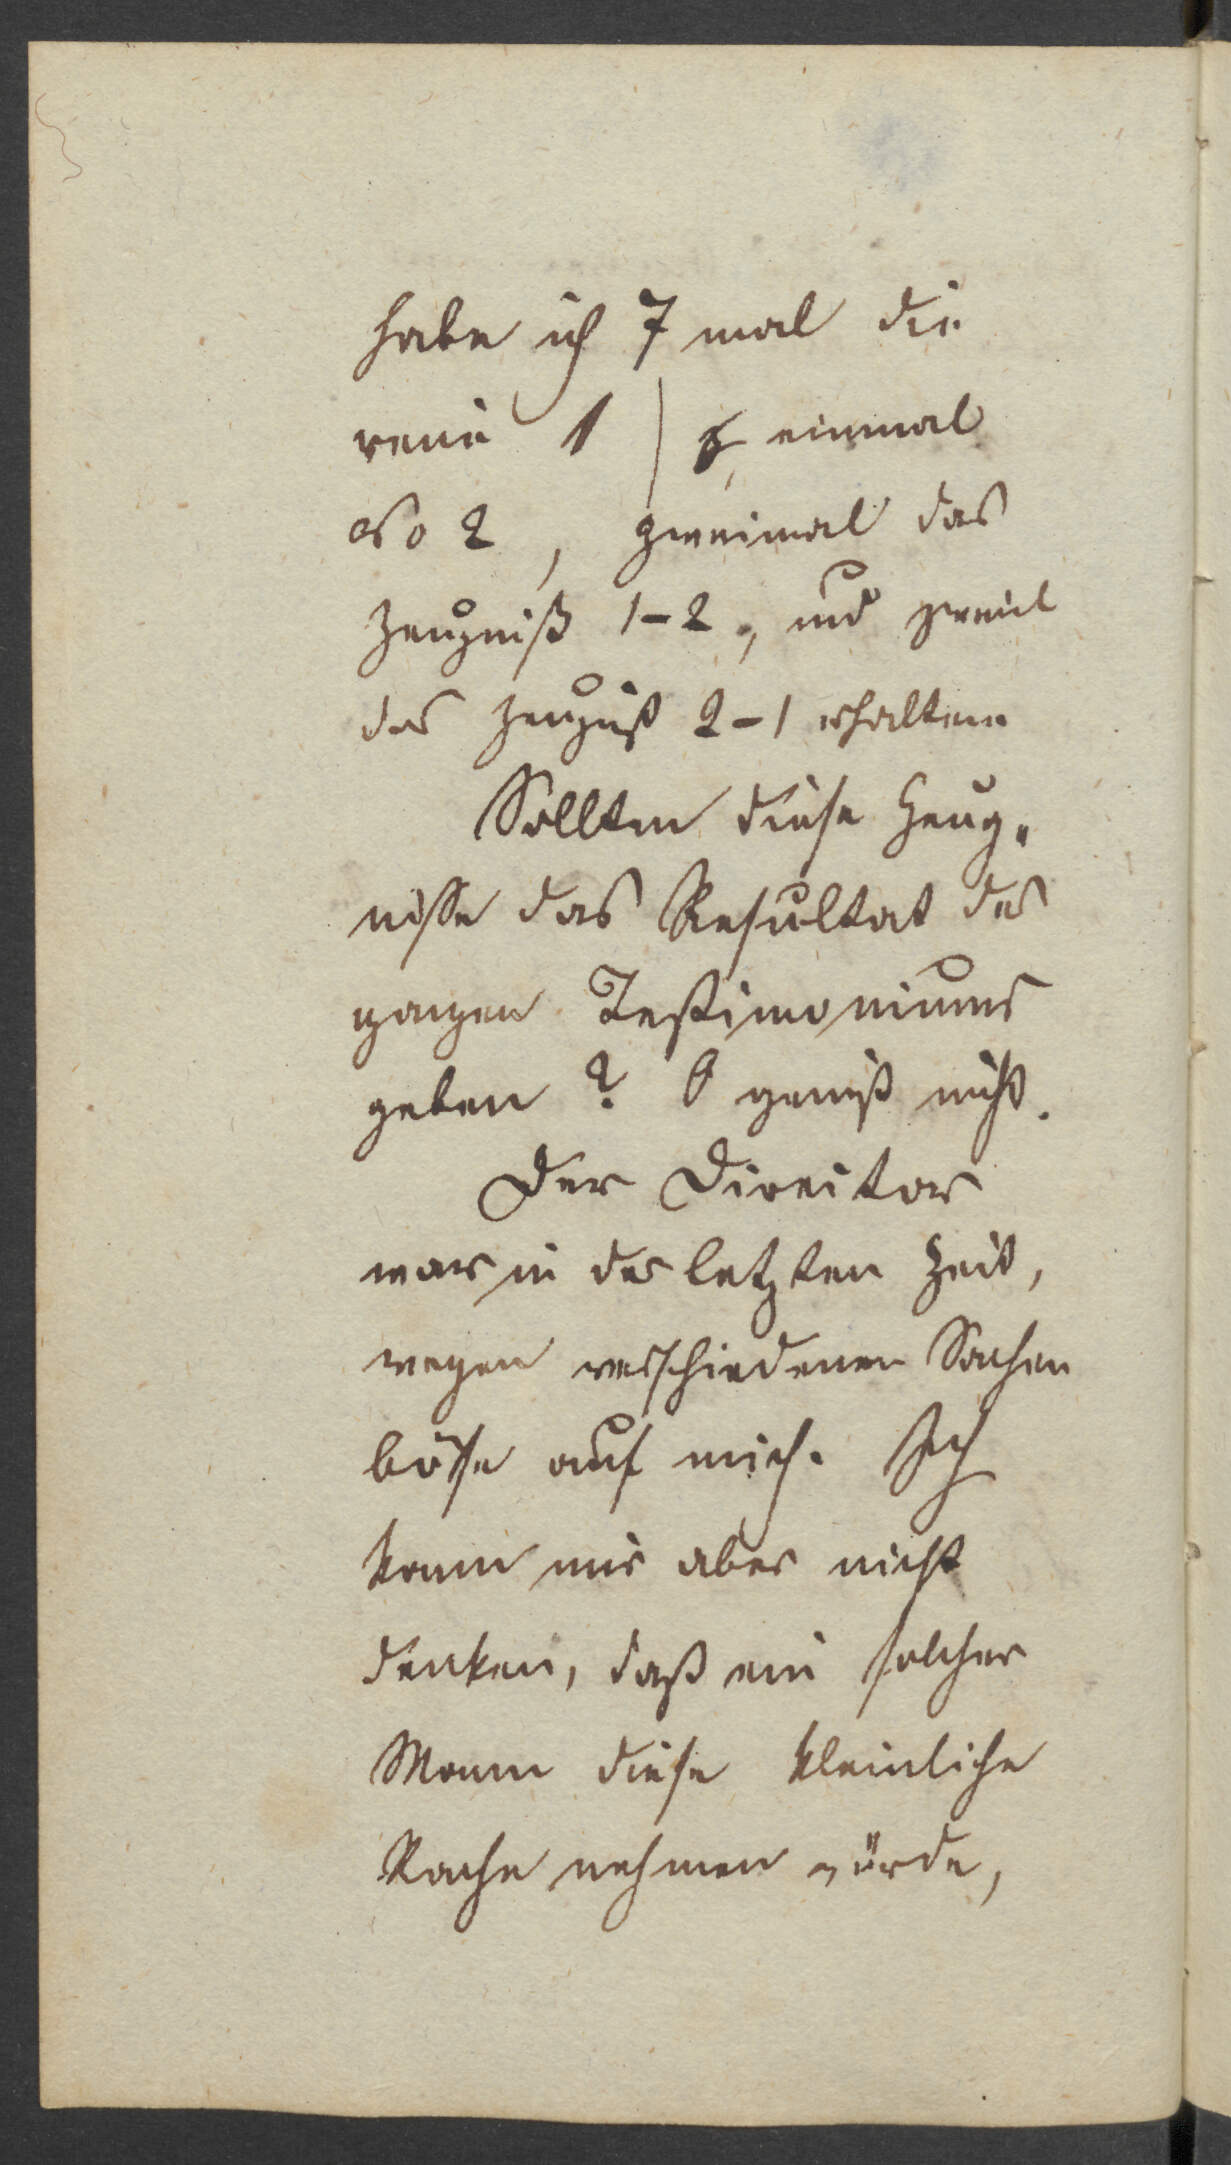 habe ich 7 mal die
reine 1, einmal
No 2, zweimal das
Zeugniß 1-2, und zweil
das Zeugniß 2-1 erhalten
Sollten diese Zeug„
nisse das Resultat des
ganzen Testimoniums
geben? O gewiß nicht.
Der Director
war in der letzten Zeit,
wegen verschiedenen Sachen
böse auf mich. Ich
kann mir aber nicht
denken, daß ein solcher
Mann diese kleinliche
Rache nehmen würde,